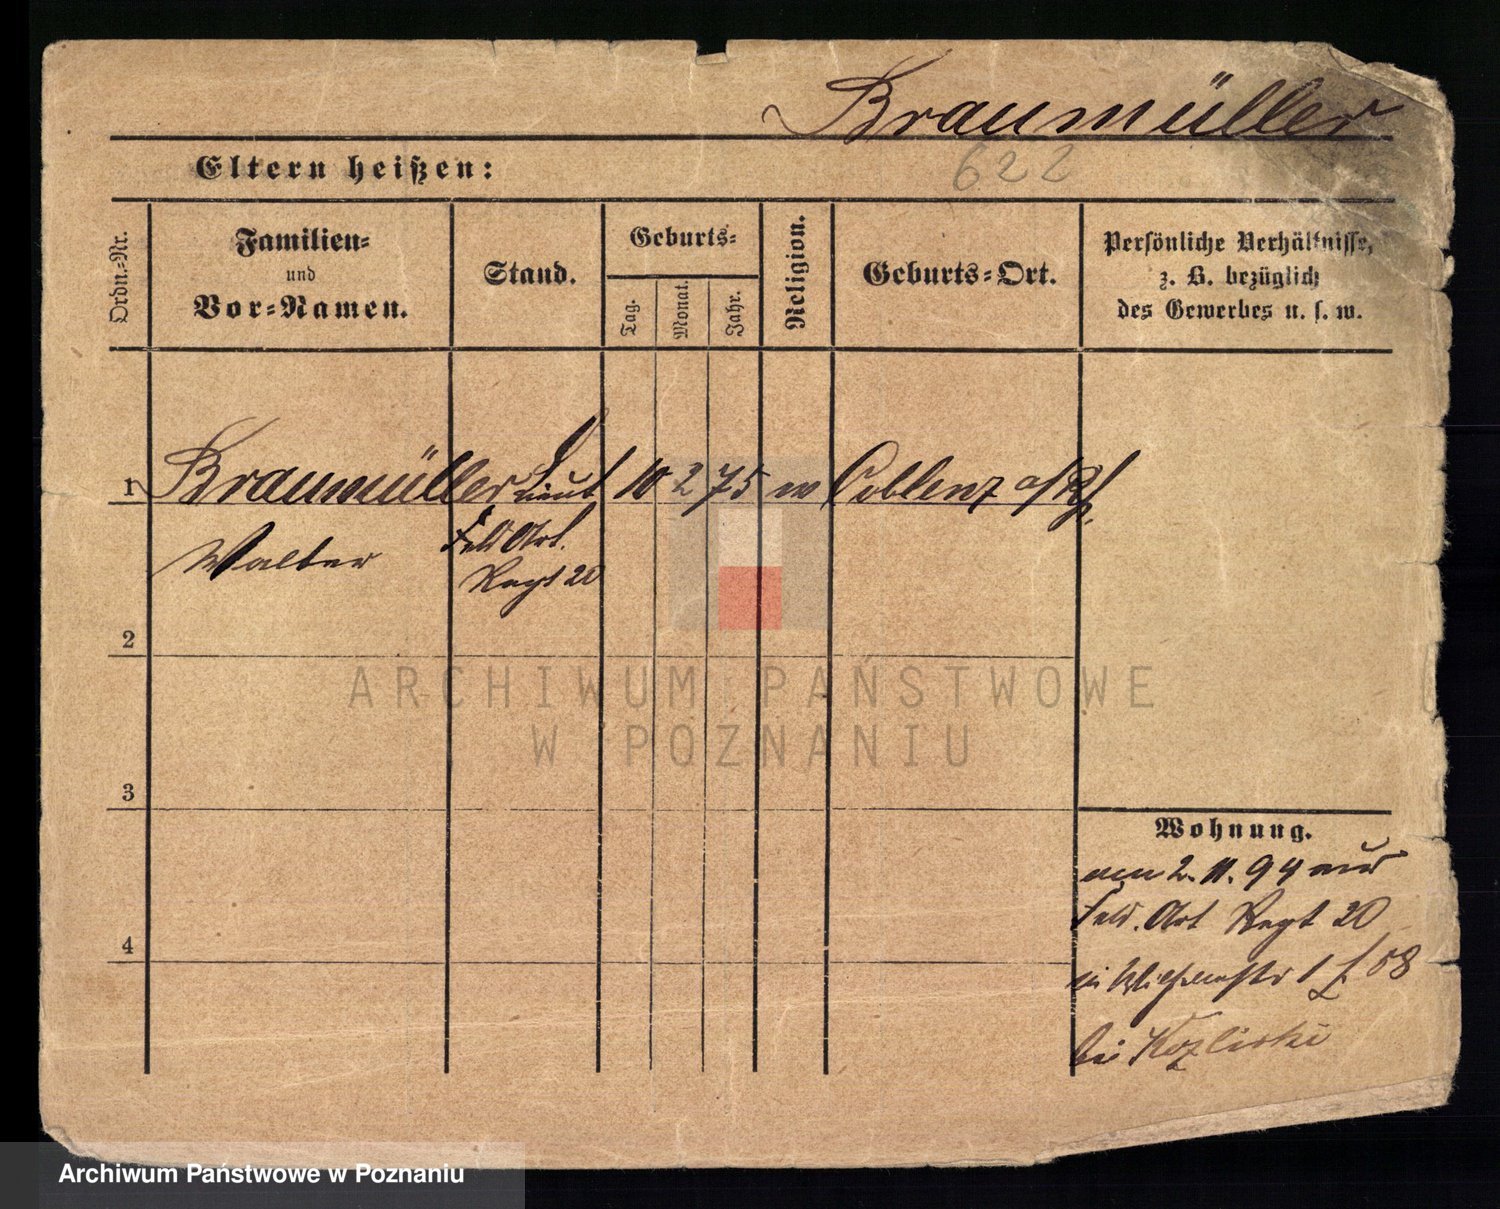 Braumüller
Eltern heißen:
622
Ordn.-Nr.
Familien-
und
Vor-Namen.
Stand.
Geburts-
Tag.
Monat.
Jahr.
Religion.
Geburts-Ort.
Persönliche Verhältnisse,
z. B. bezüglich
des Gewerbes u. s. w.
1 Braumüller Lieut 10 2 75 Coblenz a/Rh.
Walter Feld Art.
Regt 20
2
ARCHIWUM PAŃSTWOWE
W POZNANIU
3
Wohnung.
2. 11. 94
Feld. Art Regt 20
4
1
bei Kozlinski
Archiwum Państwowe w Poznaniu